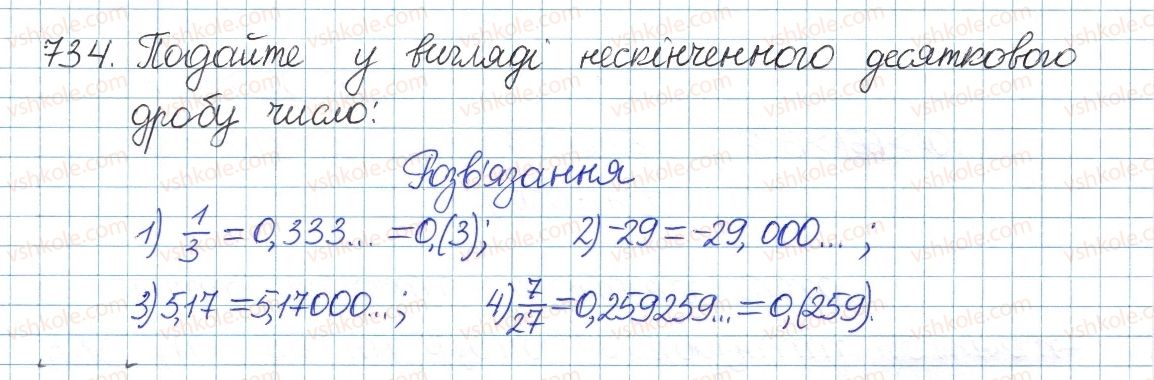 734. Подайте у вигляді нескінченного десяткового
дробу число:
Розв'язання
1) 1/3 = 0,333... = 0,(3); 2) -29 = -29,000... ;
3) 5,17 = 5,17000... ; 4) 7/27 = 0,259259... = 0,(259).